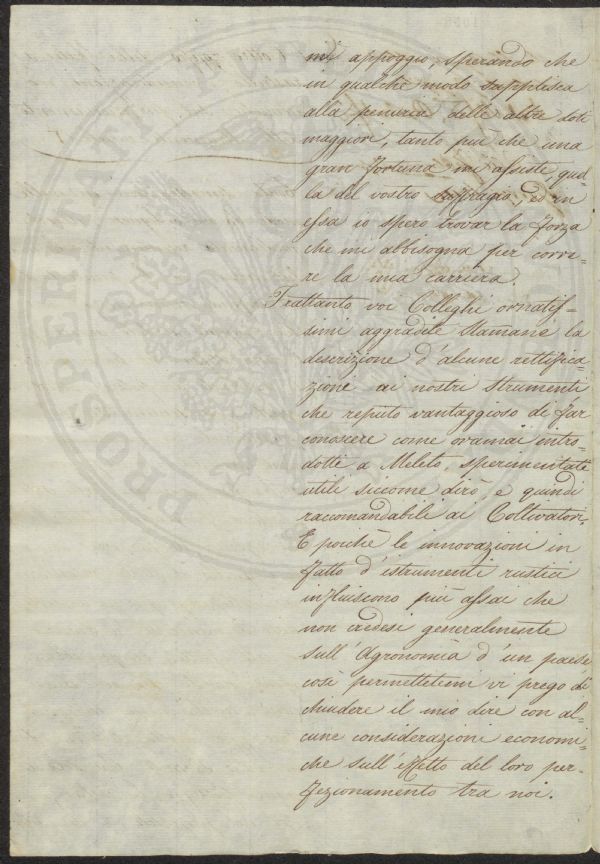 mi appoggio, sperando che
in qualche modo supplisca
alla penuria delle altre doti
maggiori, tanto più che una
gran fortuna mi assiste, quel
la del vostro suffragio, ed in
essa io spero trovar la forza
che mi abbisogna per corre=
re la mia carriera.
Frattanto voi Colleghi ornatis=
simi aggradite stamane la
descrizione d'alcune rettifica=
zione ai nostri strumenti
che reputo vantaggioso di far
conoscere come oramai intro=
dotti a Meleto, sperimentate
utili siccome dirò, e quindi
raccomandabile ai Coltivatori.
E poichè le innovazioni in
fatto d'istrumenti rustici
influiscono più assai che
non credesi generalmente
sull'Agronomia d'un paese
così permettetemi vi prego di
chiudere il mio dire con al=
cune considerazioni economi=
che sull'effetto del loro per=
fezionamento tra noi.
PROSPERITATI